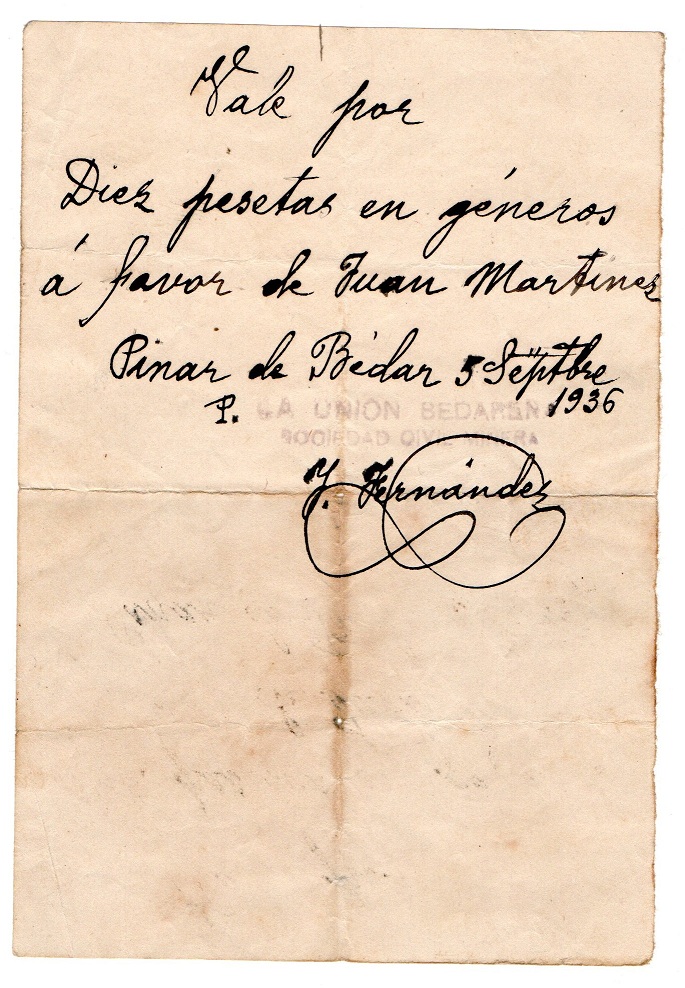 Vale por
Diez pesetas en géneros
á favor de Juan Martinez
Pinar de Bédar 5 Septbre
1936
P. LA UNION BEDAREÑA
SOCIEDAD CIVIL MINERA
J. Fernández